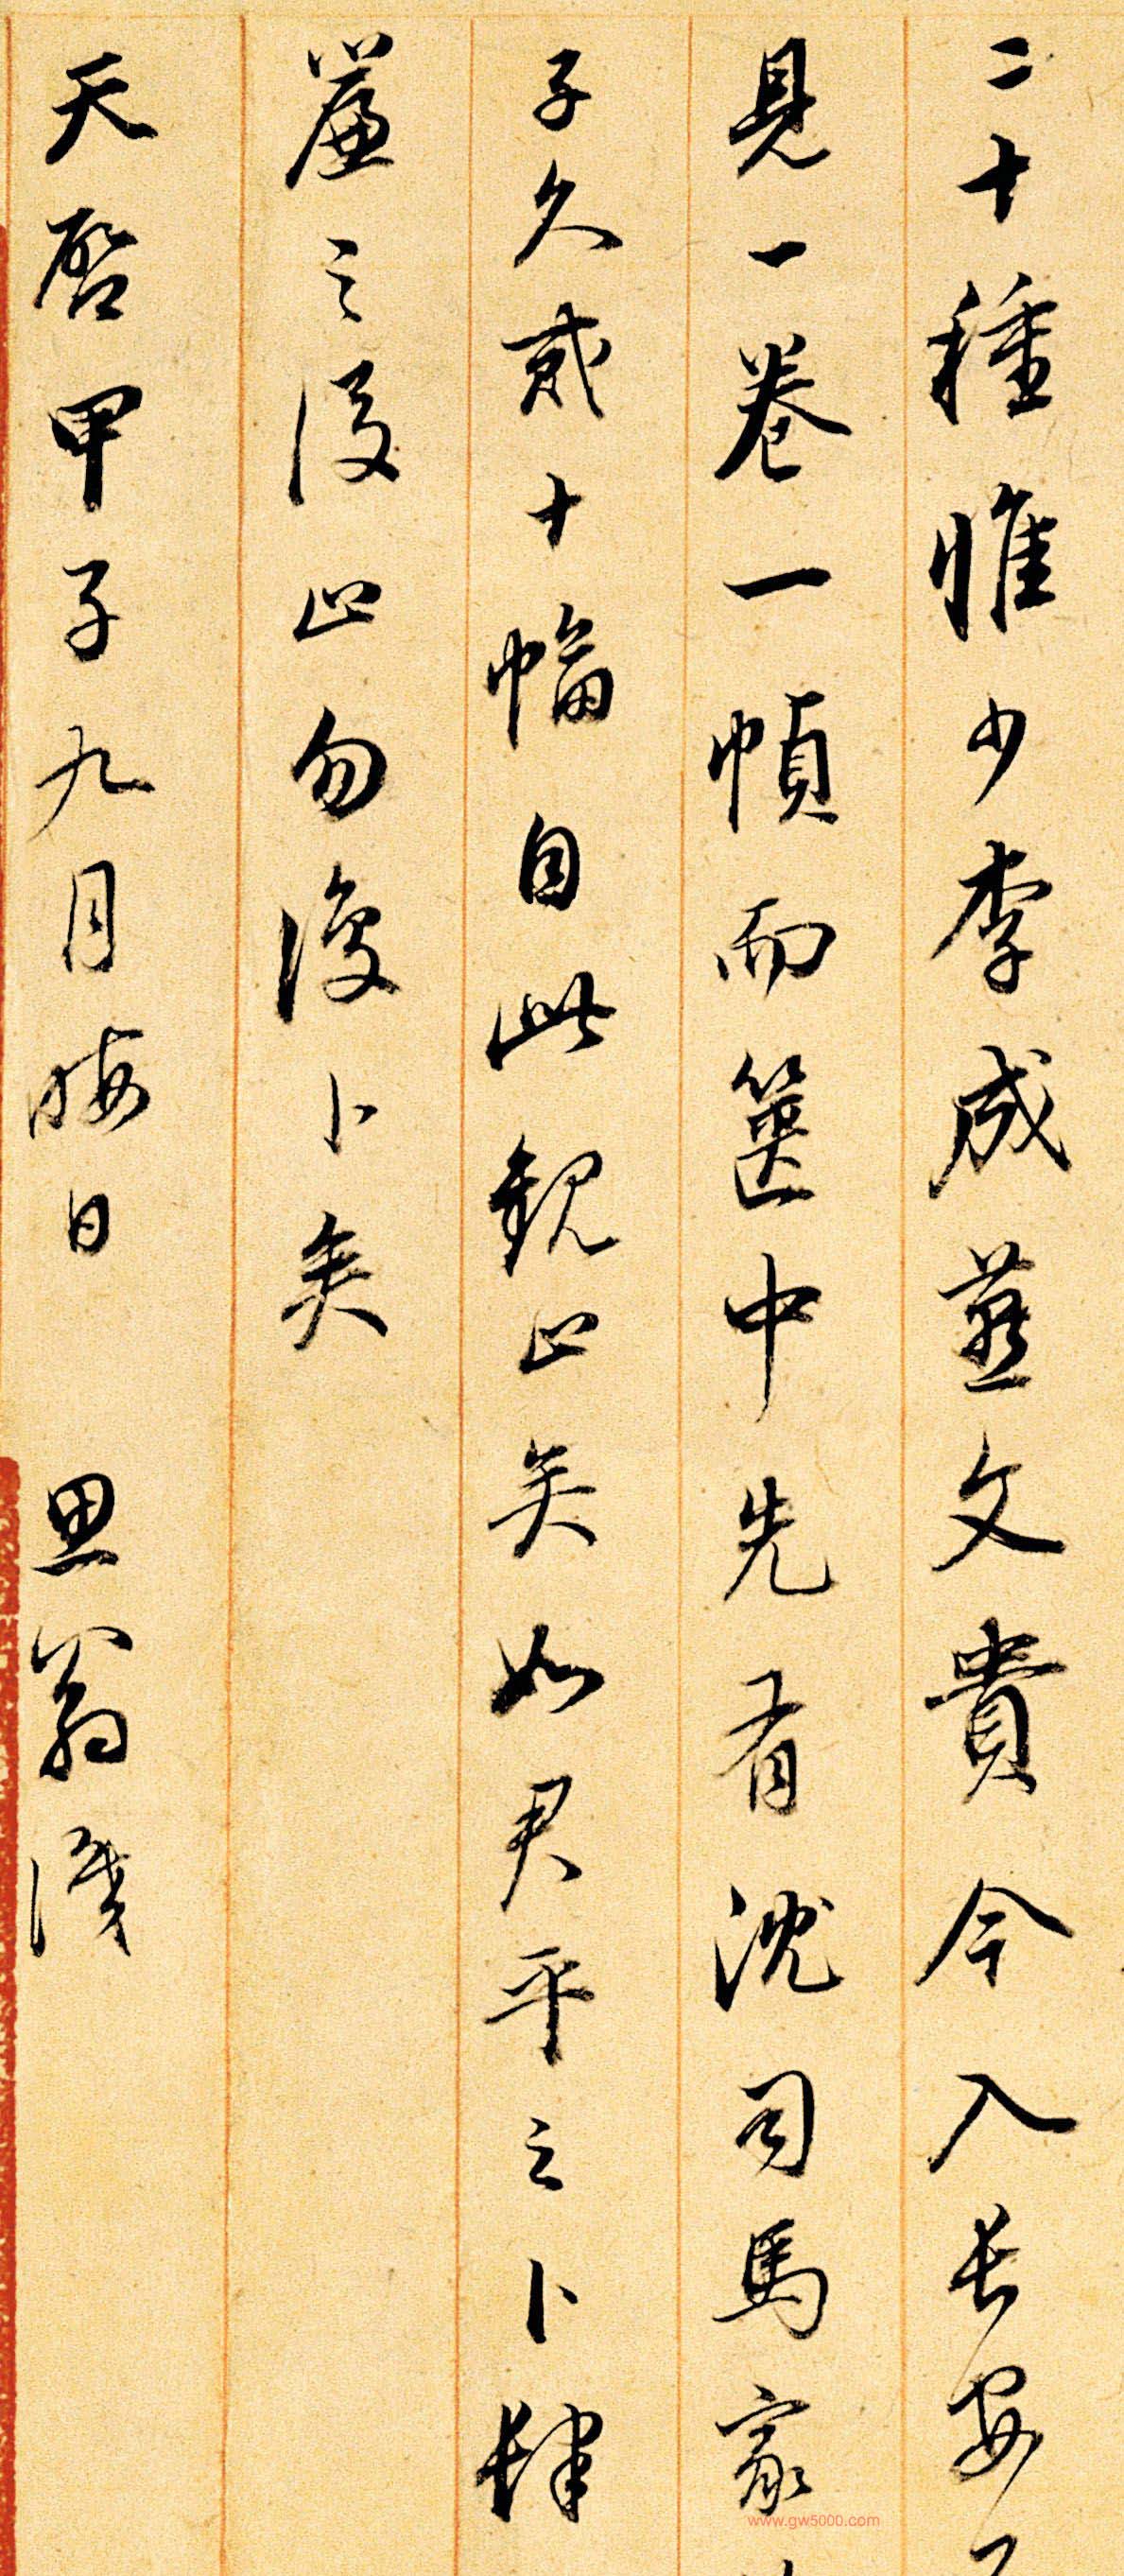 二十種惟少李成燕文貴今入長安
見一卷一幀而篋中先有沈司馬家
子久貳十幅自此觀止矣如君平之卜肆
簾之後止勿復卜矣
天啓甲子九月晦日 思翁識
www.gw5000.com